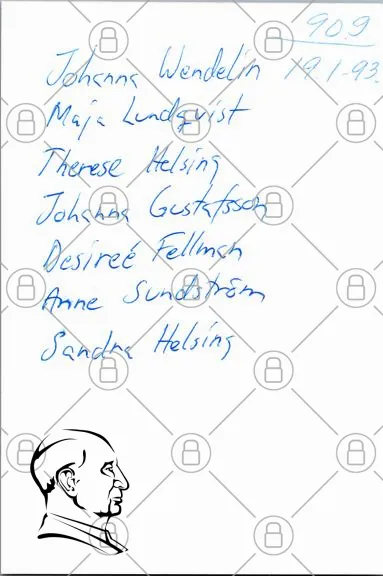 909
Johanna Wendelin 19 1-93
Maja Lundqvist
Therese Helsing
Johanna Gustafsson
Desireé Fellman
Anne Sundström
Sandra Helsing